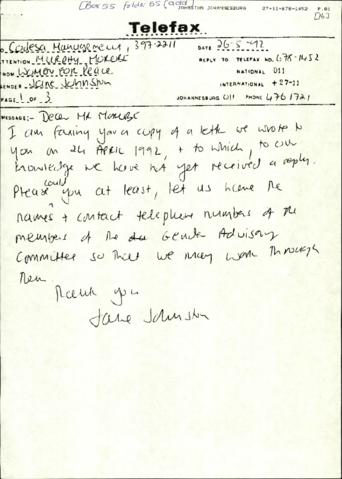 [Box 55 folder 55 (add)]
JOHNSTON JOHANNESBURG 27-11-678-1452 P.01
Telefax
O Codesa Management, 397-2211 DATE 26-5-'92
TTENTION MURPHY MOROBE REPLY TO TELEFAX NO. 678-1452
ROM WOMEN FOR PEACE NATIONAL 011
SENDER JANE JOHNSTON INTERNATIONAL +27-11
PAGE 1 OF 3 JOHANNESBURG 011 PHONE 4761721
MESSAGE:- Dear Mr Morobe
I am faxing you a copy of a letter we wrote to
you on 24 APRIL 1992, + to which, to our
knowledge we have not yet received a reply.
Please could you at least, let us have the
names + contact telephone numbers of the
members of the Gender Advisory
Committee so that we may work through
them
Thank you
Jane Johnston